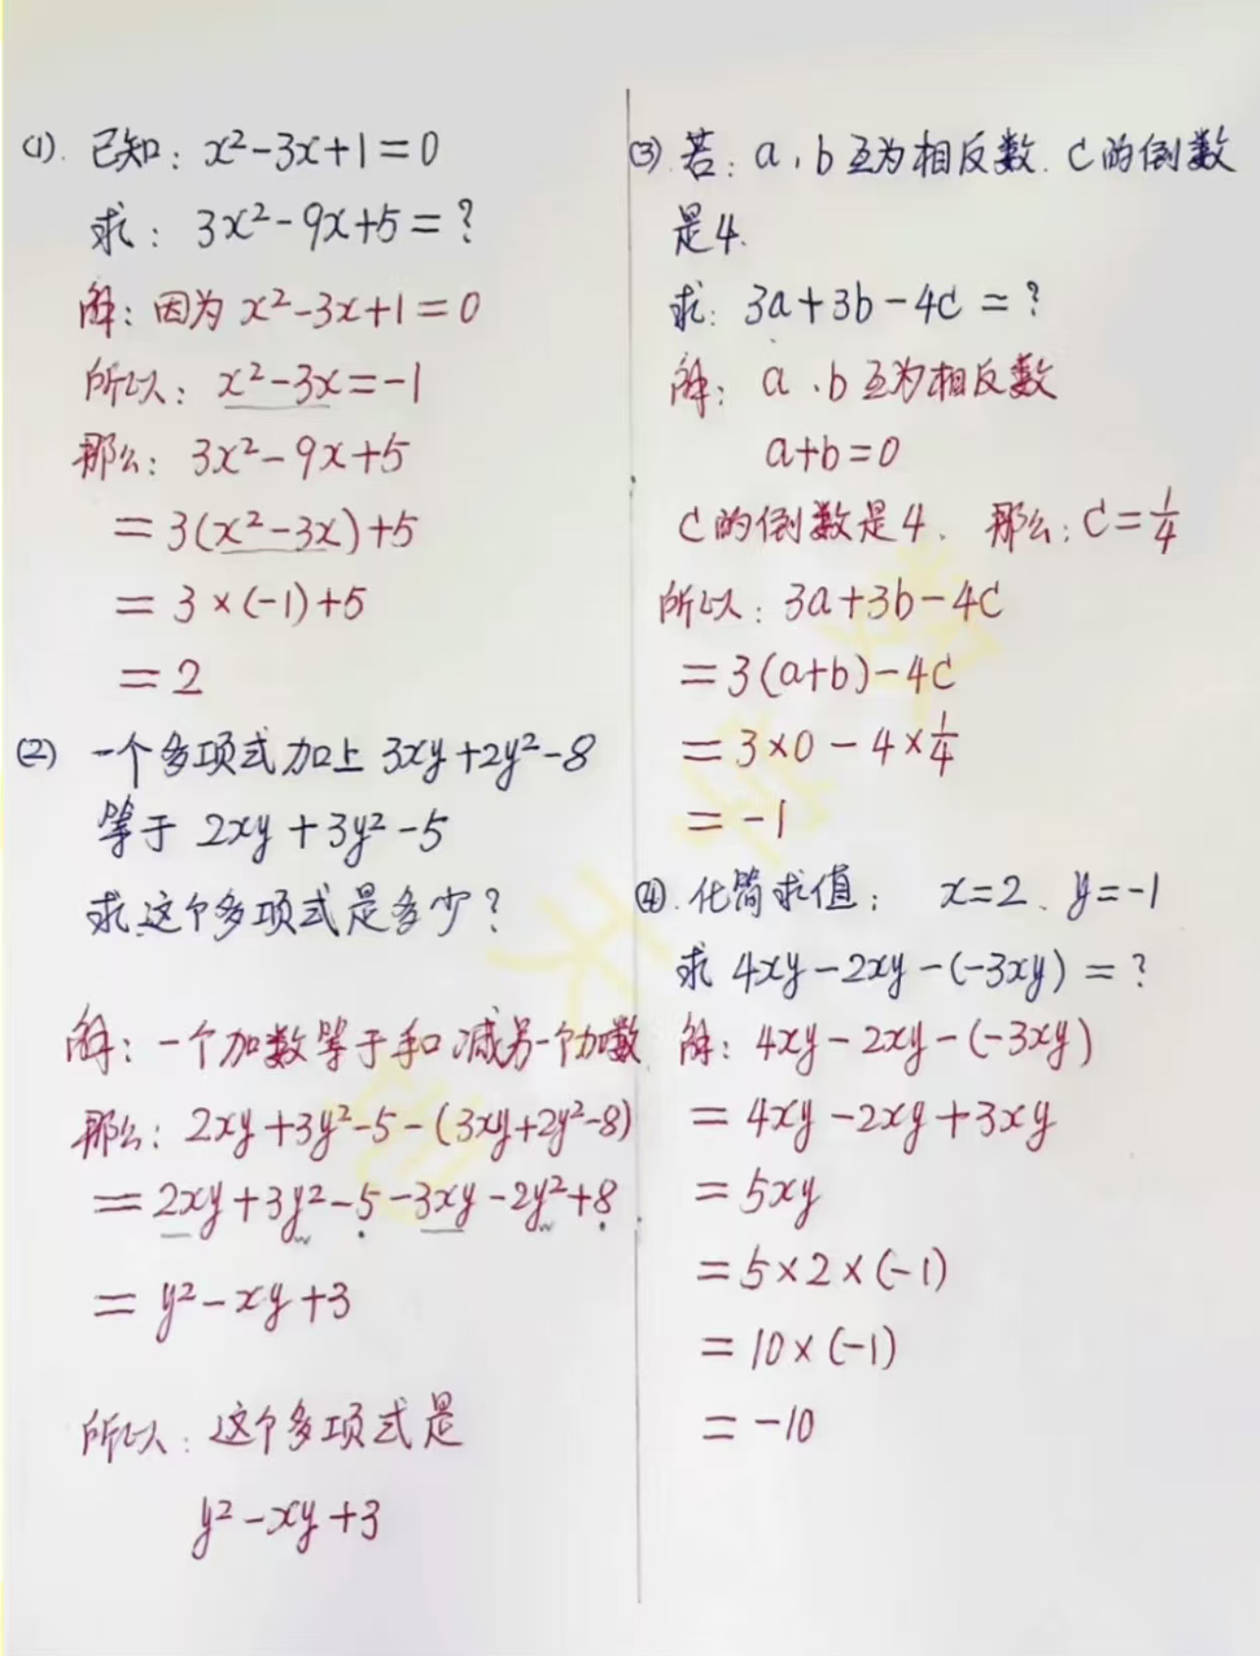 (1). 已知: x²-3x+1=0
求: 3x²-9x+5=?
解: 因为 x²-3x+1=0
所以: x²-3x=-1
那么: 3x²-9x+5
=3(x²-3x)+5
=3×(-1)+5
=2
(2) 一个多项式加上 3xy+2y²-8
等于 2xy+3y²-5
求这个多项式是多少?
解: 一个加数等于和减另一个加数
那么: 2xy+3y²-5-(3xy+2y²-8)
=2xy+3y²-5-3xy-2y²+8
=y²-xy+3
所以: 这个多项式是
y²-xy+3
(3) 若: a、b互为相反数. C的倒数
是4.
求: 3a+3b-4C=?
解: a、b互为相反数
a+b=0
C的倒数是4. 那么: C=1/4
所以: 3a+3b-4C
=3(a+b)-4C
=3×0-4×1/4
=-1
(4). 化简求值: x=2、y=-1
求 4xy-2xy-(-3xy)=?
解: 4xy-2xy-(-3xy)
=4xy-2xy+3xy
=5xy
=5×2×(-1)
=10×(-1)
=-10